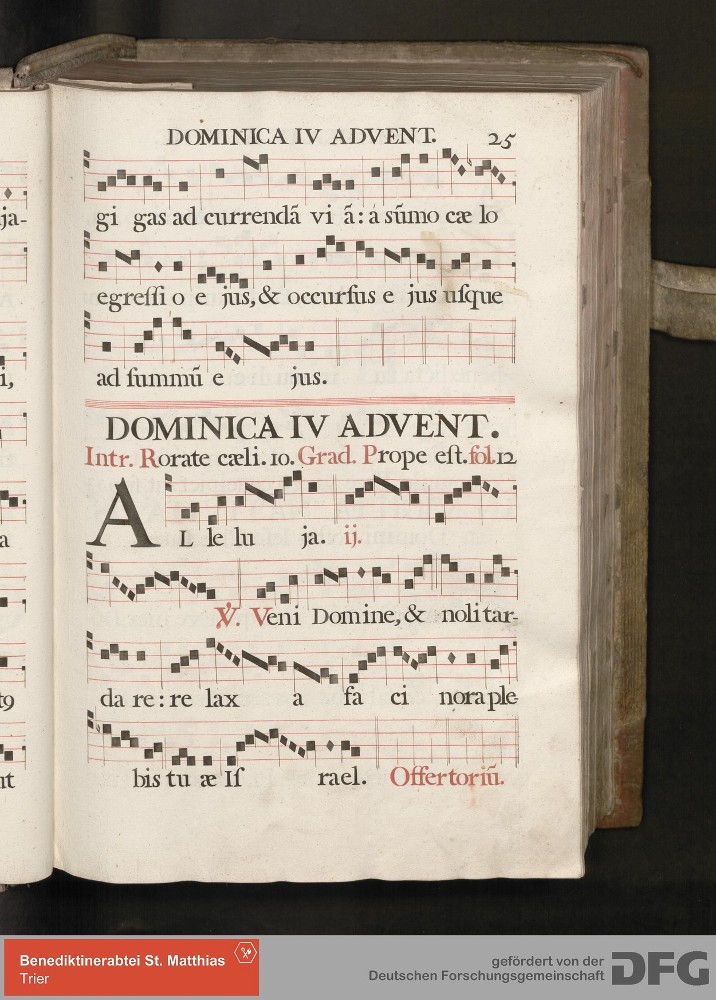 DOMINICA IV ADVENT. 25
gi gas ad currendã vi ã: a sũmo cæ lo
egreſſi o e jus, & occurſus e jus uſque
ad ſummũ e jus.
DOMINICA IV ADVENT.
Intr. Rorate cæli. 10. Grad. Prope eſt. fol. 12
AL le lu ja. ij.
℣. Veni Domine, & noli tar-
da re: re lax a fa ci nora ple-
bis tu æ Iſ rael. Offertoriũ.
ja-
i,
a
Benediktinerabtei St. Matthias
Trier
gefördert von der
Deutschen Forschungsgemeinschaft
DFG